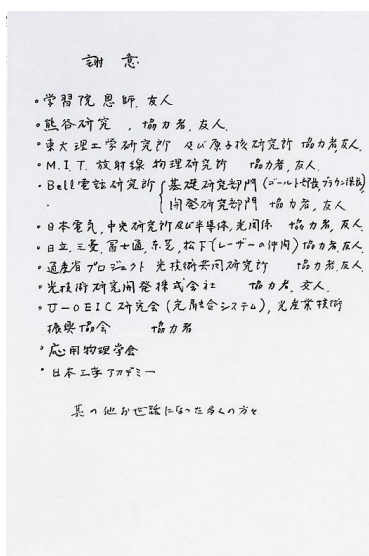 謝意
・学習院恩師、友人
・熊谷研究、協力者、友人
・東大理工学研究所 及び原子核研究所 協力者、友人
・M.I.T. 放射線物理研究所 協力者、友人
・Bell電話研究所 基礎研究部門(ゴールド部長、ブラウン課長)
開発研究部門 協力者、友人
・日本電気、中央研究所及び半導体、光関係 協力者、友人
・日立、三菱、富士通、東芝、松下(レーザーの仲間)協力者、友人
・通産省プロジェクト 光技術共同研究所 協力者、友人
・光技術研究開発株式会社 協力者、友人
・U-OEIC研究会(光融合システム)、光産業技術
振興協会 協力者
・応用物理学会
・日本工学アカデミー
其の他お世話になった多くの方々